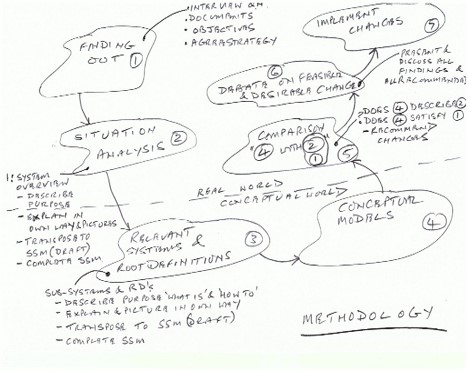 • INTERVIEW
• DOCUMENTS
• OBJECTIVES
FINDING
OUT ①
IMPLEMENT
CHANGES
⑦
⑥
DEBATE ON FEASIBLE
& DESIRABLE CHANGE
PRESENT &
DISCUSS ALL
FINDINGS &
SITUATION
ANALYSIS ②
COMPARISON
④ WITH ②
①
⑤
• DOES ④ DESCRIBE ②
• DOES ④ SATISFY ①
- RECOMMEND
CHANGES
1: SYSTEM
OVERVIEW
- DESCRIBE
PURPOSE
- EXPLAIN IN
OWN WAY & PICTURES
- TRANSPOSE TO
SSM (DRAFT)
- COMPLETE SSM
REAL WORLD
CONCEPTUAL WORLD
RELEVANT
SYSTEMS &
ROOT DEFINITIONS
③
CONCEPTUAL
MODELS
④
SUB-SYSTEMS & RD's
- DESCRIBE PURPOSE 'WHAT IS' & HOW TO'
- EXPLAIN & PICTURE IN OWN WAY
- TRANSPOSE TO SSM (DRAFT)
- COMPLETE SSM
METHODOLOGY